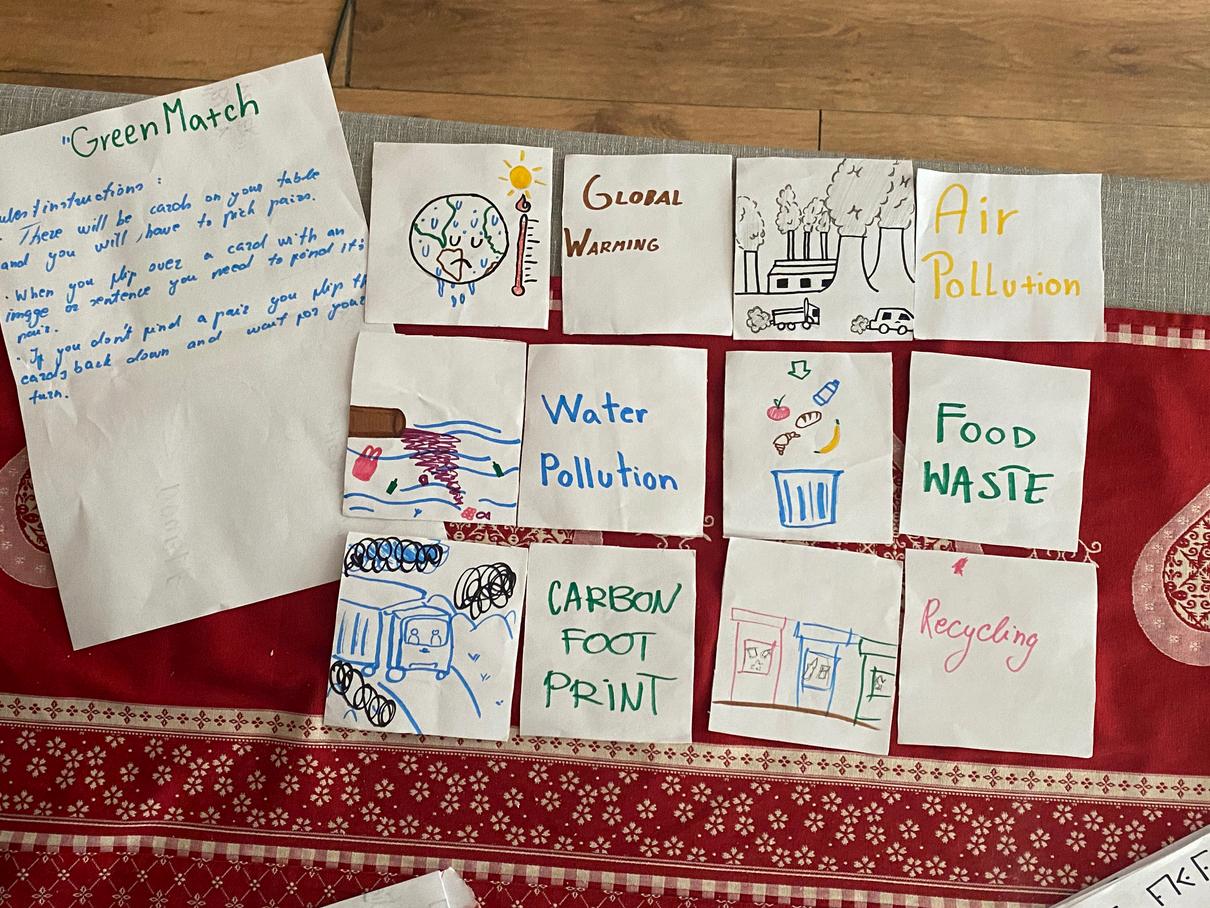 "Green Match
ules & instructions :
· There will be cards on your table
and you will have to pick pairs.
· When you flip over a card with an
image or sentence you need to find it's
pair.
· If you don't find a pair you flip th
cards back down and wait for your
turn.
GLOBAL
WARMING
Air
Pollution
Water
Pollution
FOOD
WASTE
CARBON
FOOT
PRINT
Recycling